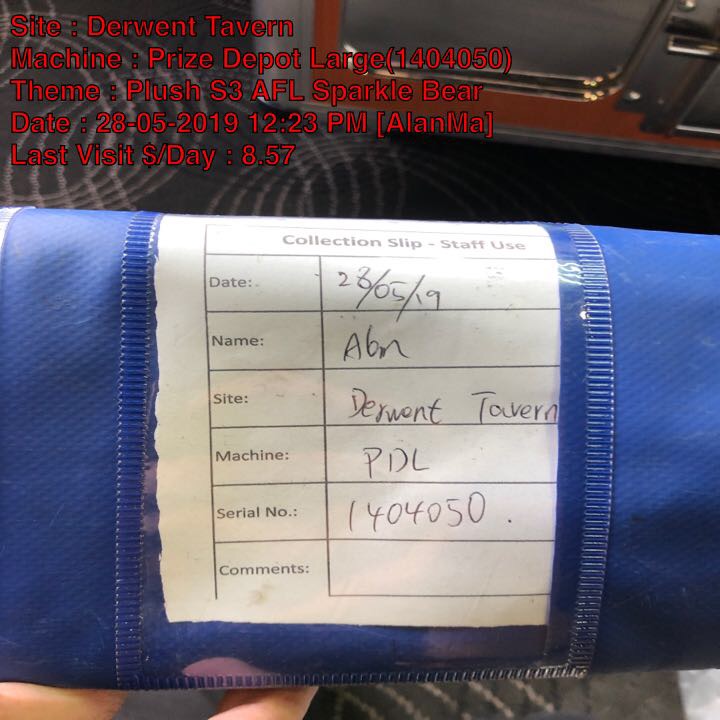 Site : Derwent Tavern
Machine : Prize Depot Large(1404050)
Theme : Plush S3 AFL Sparkle Bear
Date : 28-05-2019 12:23 PM [AlanMa]
Last Visit $/Day : 8.57
Collection Slip - Staff Use
Date: 28/05/19
Name:
Site: Derwent Tavern
Machine: PDL
Serial No.: 1404050.
Comments: